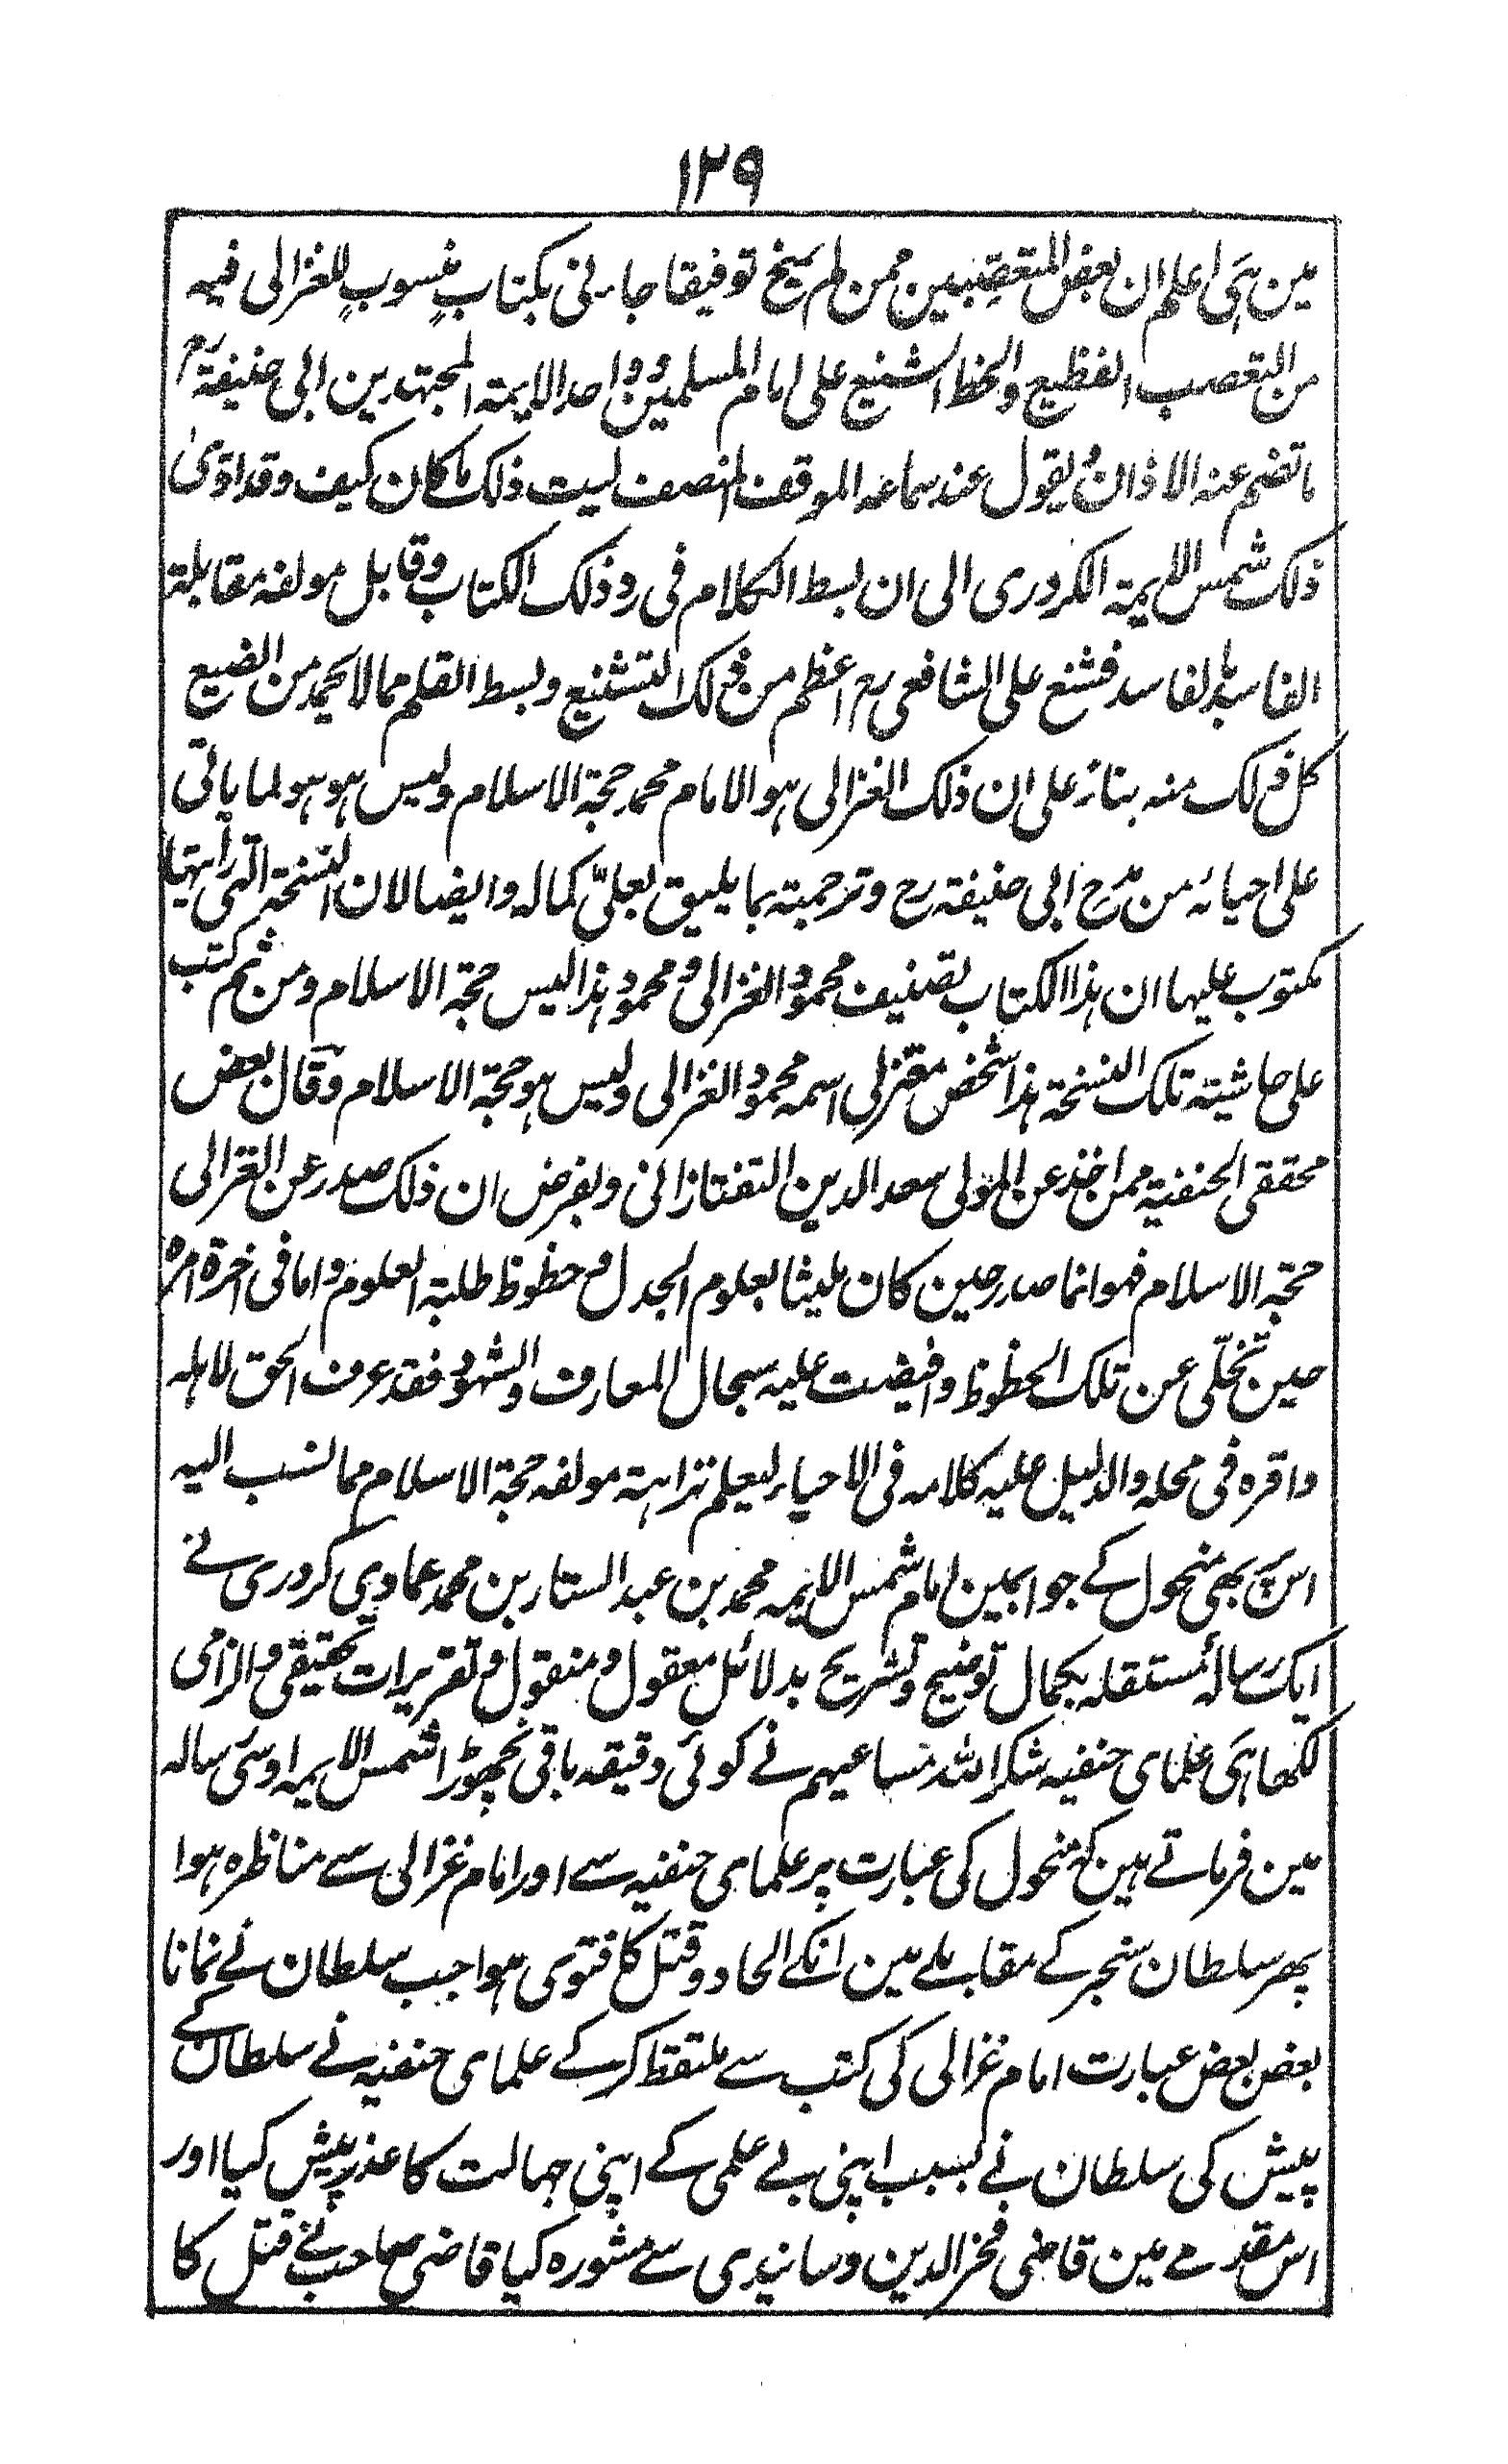 ۱۲۹
مین ہی اعلم ان بعض المتعصبین ممن لم یمنح توفیقا جاءنی بکتاب منسوب للغزالی فیہ
من التعصب الفظیع والحط الشنیع علی امام المسلمین وواحد الایمۃ المجتہدین ابی حنیفۃ رح
ما تضم عنہ الاذان ویقول عند سماعہ الموفق المنصف لیت ذلک ما کان کیف وقد اوّیٰ
ذلک شمس الایمۃ الکردری الی ان بسط الکلام فی رد ذلک الکتاب وقابل مولفہ مقابلۃ
الفاسد بالفاسد فشنع علی الشافعی رح اعظم من ذلک التشنیع وبسط القلم مما لا یحمد من الضیع
کل ذلک منہ بناءً علی ان ذلک الغزالی ہو الامام محمد حجۃ الاسلام ولیس ہو ہو لما یاتی
علی احیائہ من مدح ابی حنیفۃ رح وترجمتہ بما یلیق بعلیّ کمالہ وایضا لان النسخۃ التی رأیتہا
مکتوب علیہا ان ہذا الکتاب تصنیف محمود الغزالی ومحمود ہذا لیس حجۃ الاسلام ومن ثم کتب
علی حاشیتہ تلک النسخۃ ہذا شخص معتزلی اسمہ محمود الغزالی ولیس ہو حجۃ الاسلام وقال بعض
محققی الحنفیۃ ممن اخذ عن المولی سعد الدین التفتازانی وبفرض ان ذلک صدر عن الغزالی
حجۃ الاسلام فہو انما صدر حین کان ملبثا بعلوم الجدل وحظوظ طلبۃ العلوم واما فی اخرۃ امرہ
حین تخلّی عن تلک الحظوظ وافیضت علیہ سجال المعارف والشہود فقد عرف الحق لاہلہ
واقرہ فی محلہ والدلیل علیہ کلامہ فی الاحیاء لیعلم نزاہتہ مولفہ حجۃ الاسلام مما نسب الیہ
اس پر بھی منخول کے جوابمین امام شمس الایمہ محمد بن عبد الستار بن محمد عمادی کردری نے
ایک رسالۂ مستقلہ بکمال توضیح وتشریح بدلائل معقول ومنقول وتقریرات تحقیقی والزامی
لکھا ہی علمای حنفیہ شکر اللہ مساعیہم نے کوئی دقیقہ باقی نچھوڑا شمس الایمہ اوسی رسالہ
مین فرماتے ہین کہ منخول کی عبارت پر علمای حنفیہ سے اور امام غزالی سے مناظرہ ہوا
پھر سلطان سنجر کے مقابلے مین انکے الحاد وقتل کا فتوی ہوا جب سلطان نے نمانا
بعض بعض عبارت امام غزالی کی کتب سے ملتقط کر کے علمای حنفیہ نے سلطان کے
پیش کی سلطان نے بسبب اپنی بے علمی کے اپنی جہالت کا عذر پیش کیا اور
اس مقدمے مین قاضی فخر الدین وسانیدی سے مشورہ کیا قاضی صاحب نے قتل کا